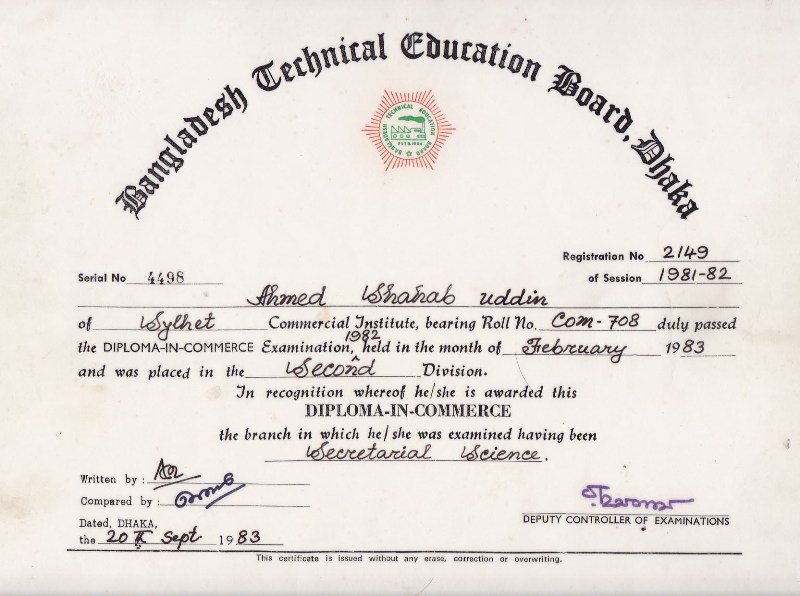 Bangladesh Technical Education Board, Dhaka
BANGLADESH TECHNICAL EDUCATION BOARD
ESTD. 1954
Registration No 2149
Serial No 4498
of Session 1981-82
Ahmed Shahab uddin
of Sylhet Commercial Institute, bearing Roll No. Com-708 duly passed
1982
the DIPLOMA-IN-COMMERCE Examination, held in the month of February 1983
and was placed in the Second Division.
In recognition whereof he/she is awarded this
DIPLOMA-IN-COMMERCE
the branch in which he/she was examined having been
Secretarial Science.
Written by :
Compared by :
Dated, DHAKA,
the 20th Sept 1983
DEPUTY CONTROLLER OF EXAMINATIONS
This certificate is issued without any erase, correction or overwriting.